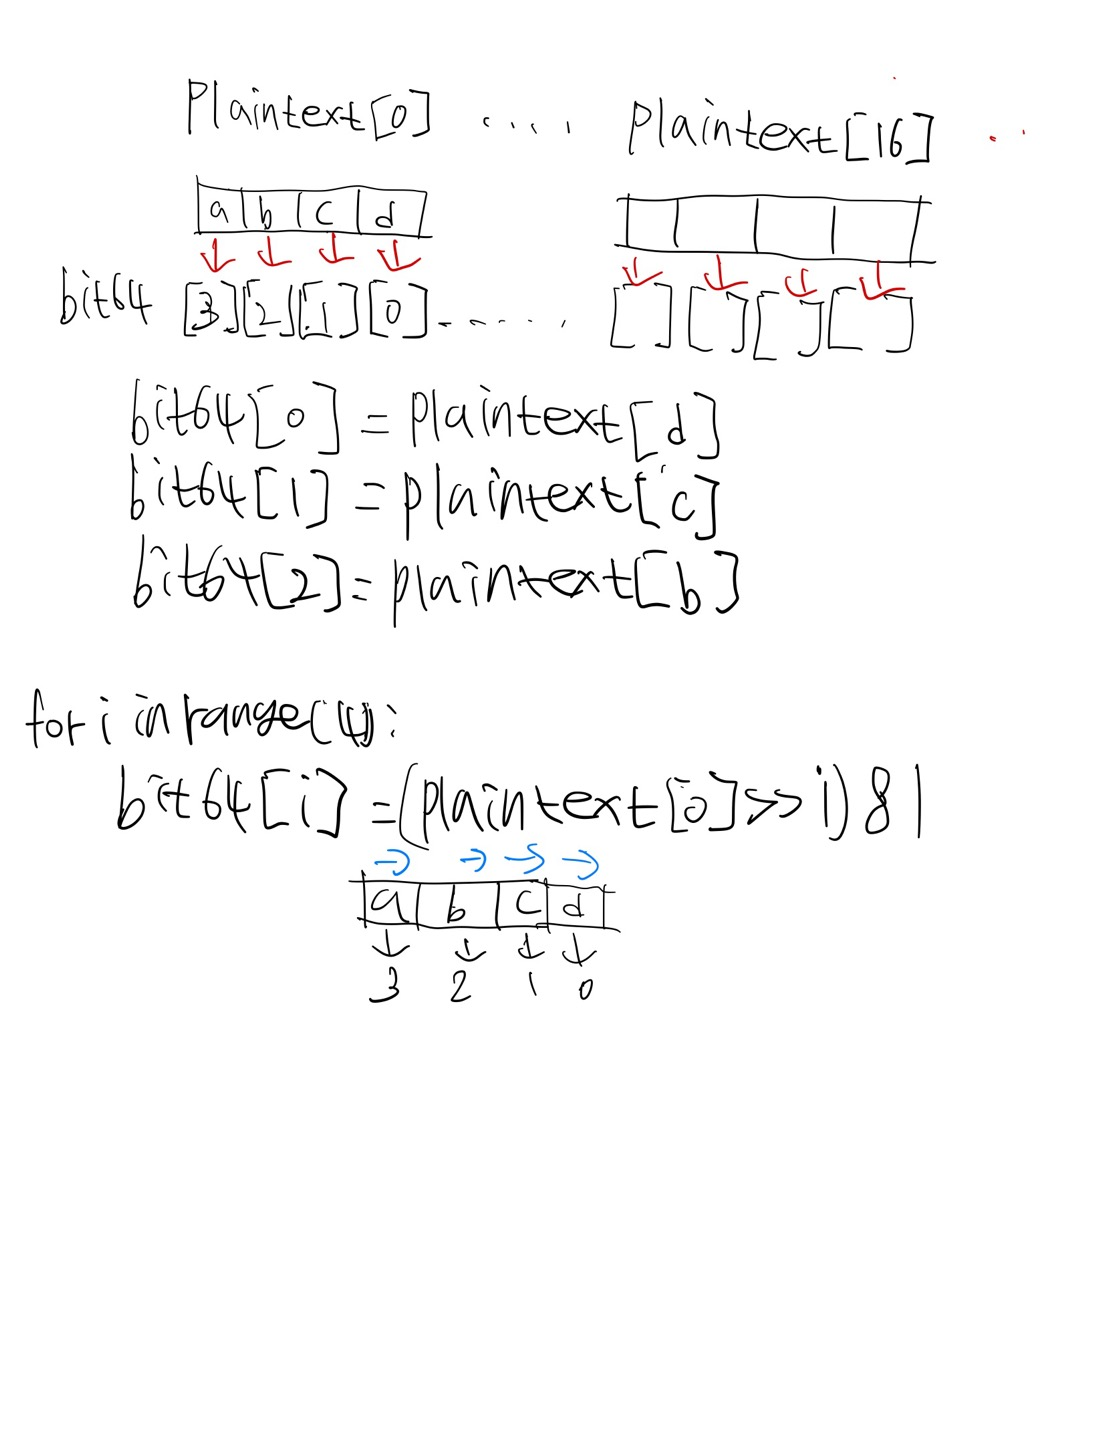 Plaintext[0] ..... Plaintext[16] ..
a b c d
bit64 [3][2][1][0]...... [ ][ ][ ][ ]
bit64[0] = plaintext[d]
bit64[1] = plaintext[c]
bit64[2] = plaintext[b]
for i in range(4):
bit64[i] = (plaintext[0] >> i) & 1
a b c d
3 2 1 0